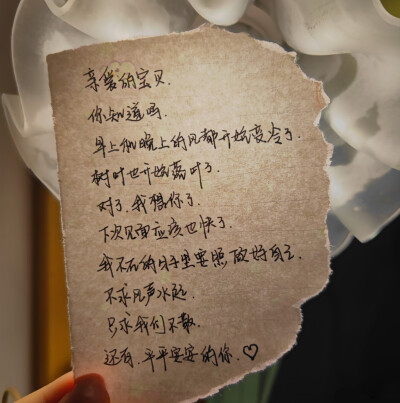 亲爱的宝贝.
你知道吗.
早上和晚上的风都开始变冷了.
树叶也开始落叶了.
对了,我想你了.
下次见面应该也快了.
我不在的日子里要照顾好自己.
不求风声水起
只求我们不散.
还有,平平安安的你.♡